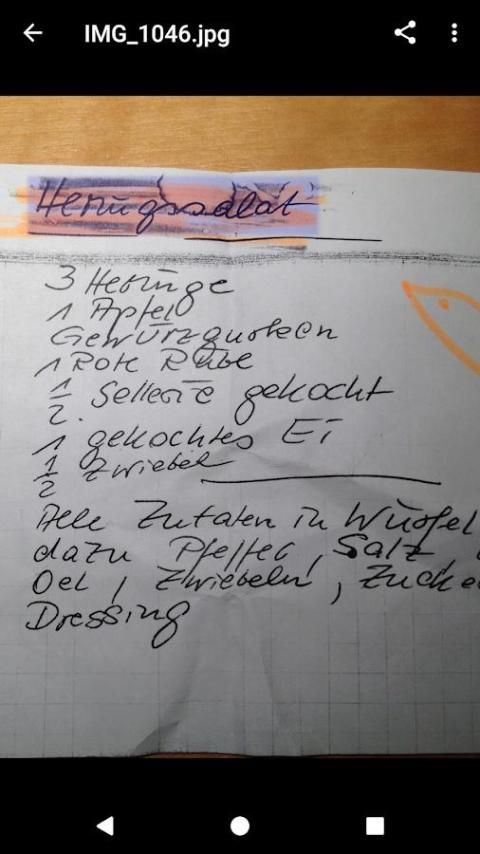 IMG_1046.jpg
Heringssalat
3 Heringe
1 Apfel
Gewürzgurken
1 Rote Rübe
1/2 Sellerie gekocht
1 gekochtes Ei
1/2 Zwiebel
Alle Zutaten in Würfel
dazu Pfeffer, Salz,
Oel, Zwiebeln, Zucke
Dressing